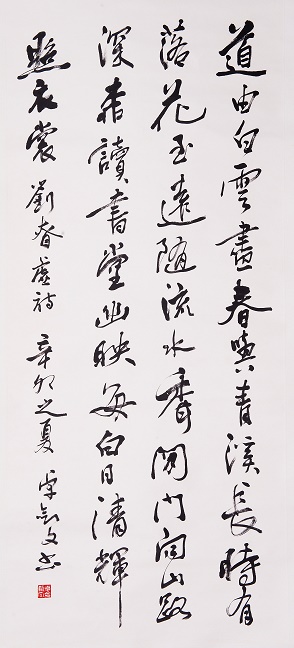 道由白雲盡春與青溪長時有
落花至遠隨流水香閒門向山路
深柳讀書堂幽映每白日清輝
照衣裳 劉眘虛詩 辛卯之夏 文书